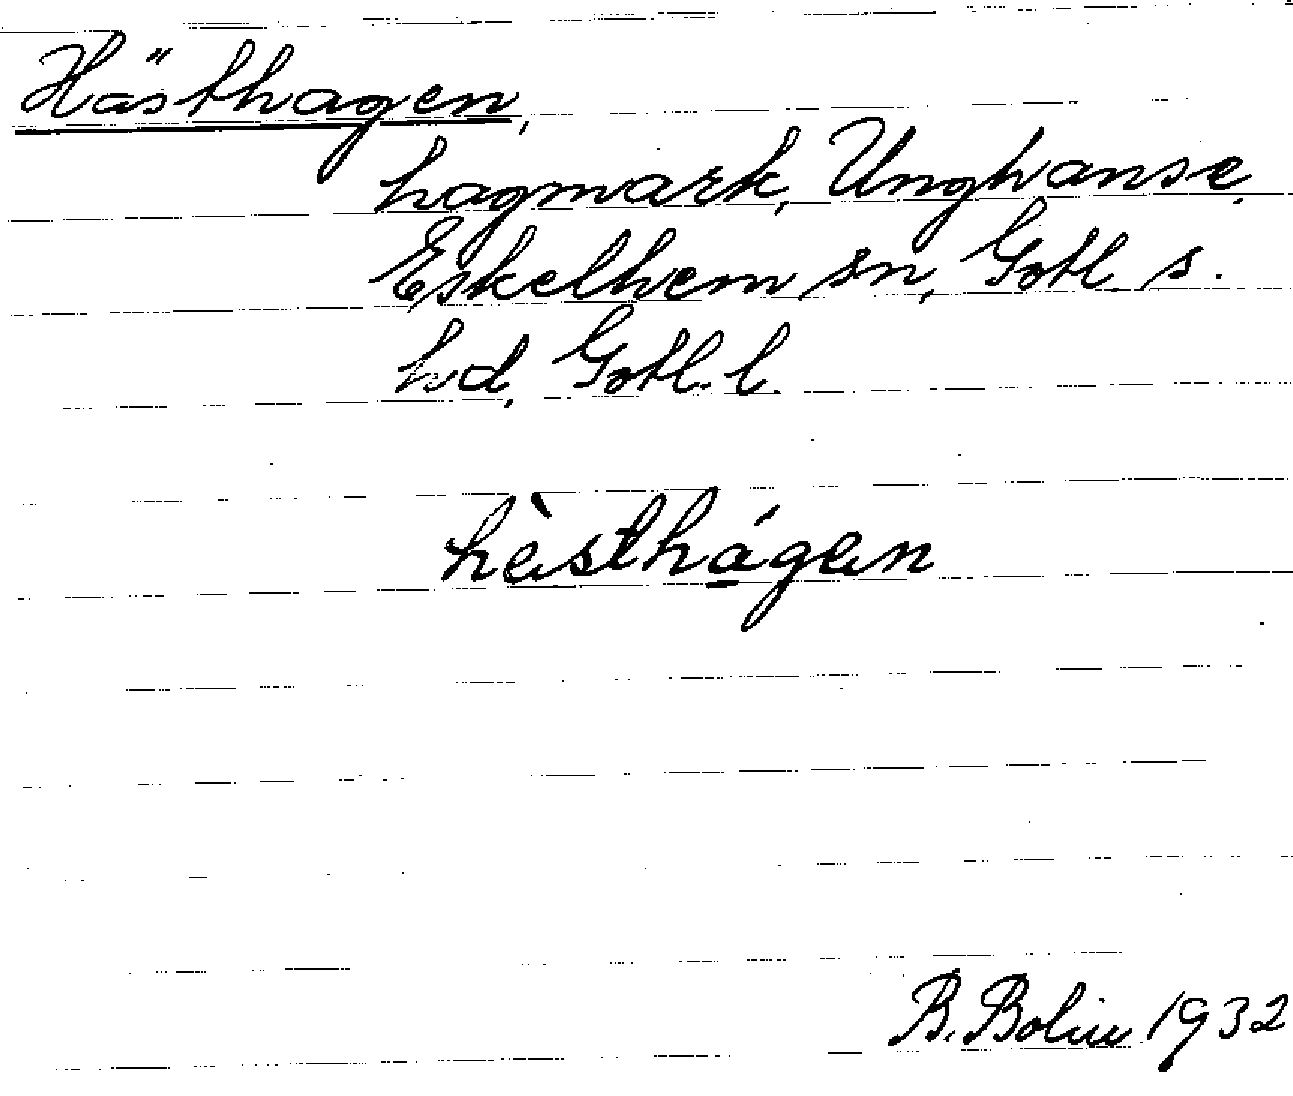 Hästhagen,
hagmark, Unghanse,
Eskelhem sn, Gotl. s.
hd, Gotl. l.
hèsthágen
B. Bolin 1932